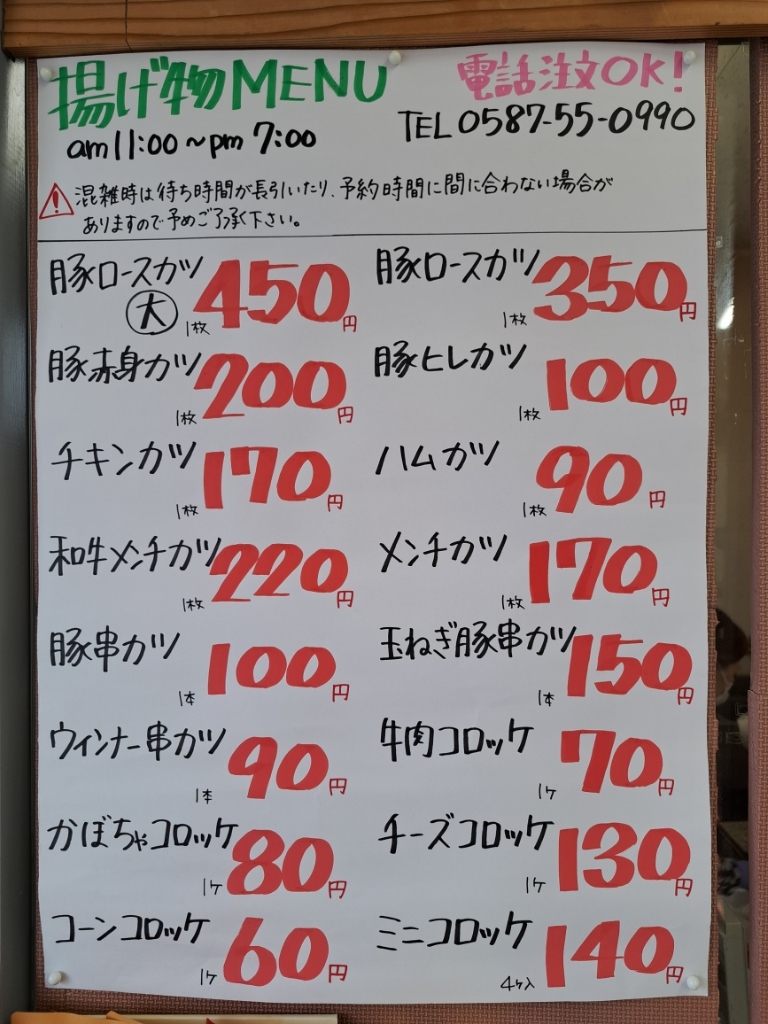 揚げ物MENU
電話注文OK!
am 11:00~pm 7:00
TEL 0587-55-0990
混雑時は待ち時間が長引いたり、予約時間に間に合わない場合が
ありますので予めご了承下さい。
豚ロースカツ 大 1枚 450円
豚ロースカツ 1枚 350円
豚赤身カツ 1枚 200円
豚ヒレカツ 1枚 100円
チキンカツ 1枚 170円
ハムカツ 1枚 90円
和牛メンチカツ 1枚 220円
メンチカツ 1枚 170円
豚串カツ 1本 100円
玉ねぎ豚串カツ 1本 150円
ウィンナー串カツ 1本 90円
牛肉コロッケ 1ケ 70円
かぼちゃコロッケ 1ケ 80円
チーズコロッケ 1ケ 130円
コーンコロッケ 1ケ 60円
ミニコロッケ 4ケ入 140円